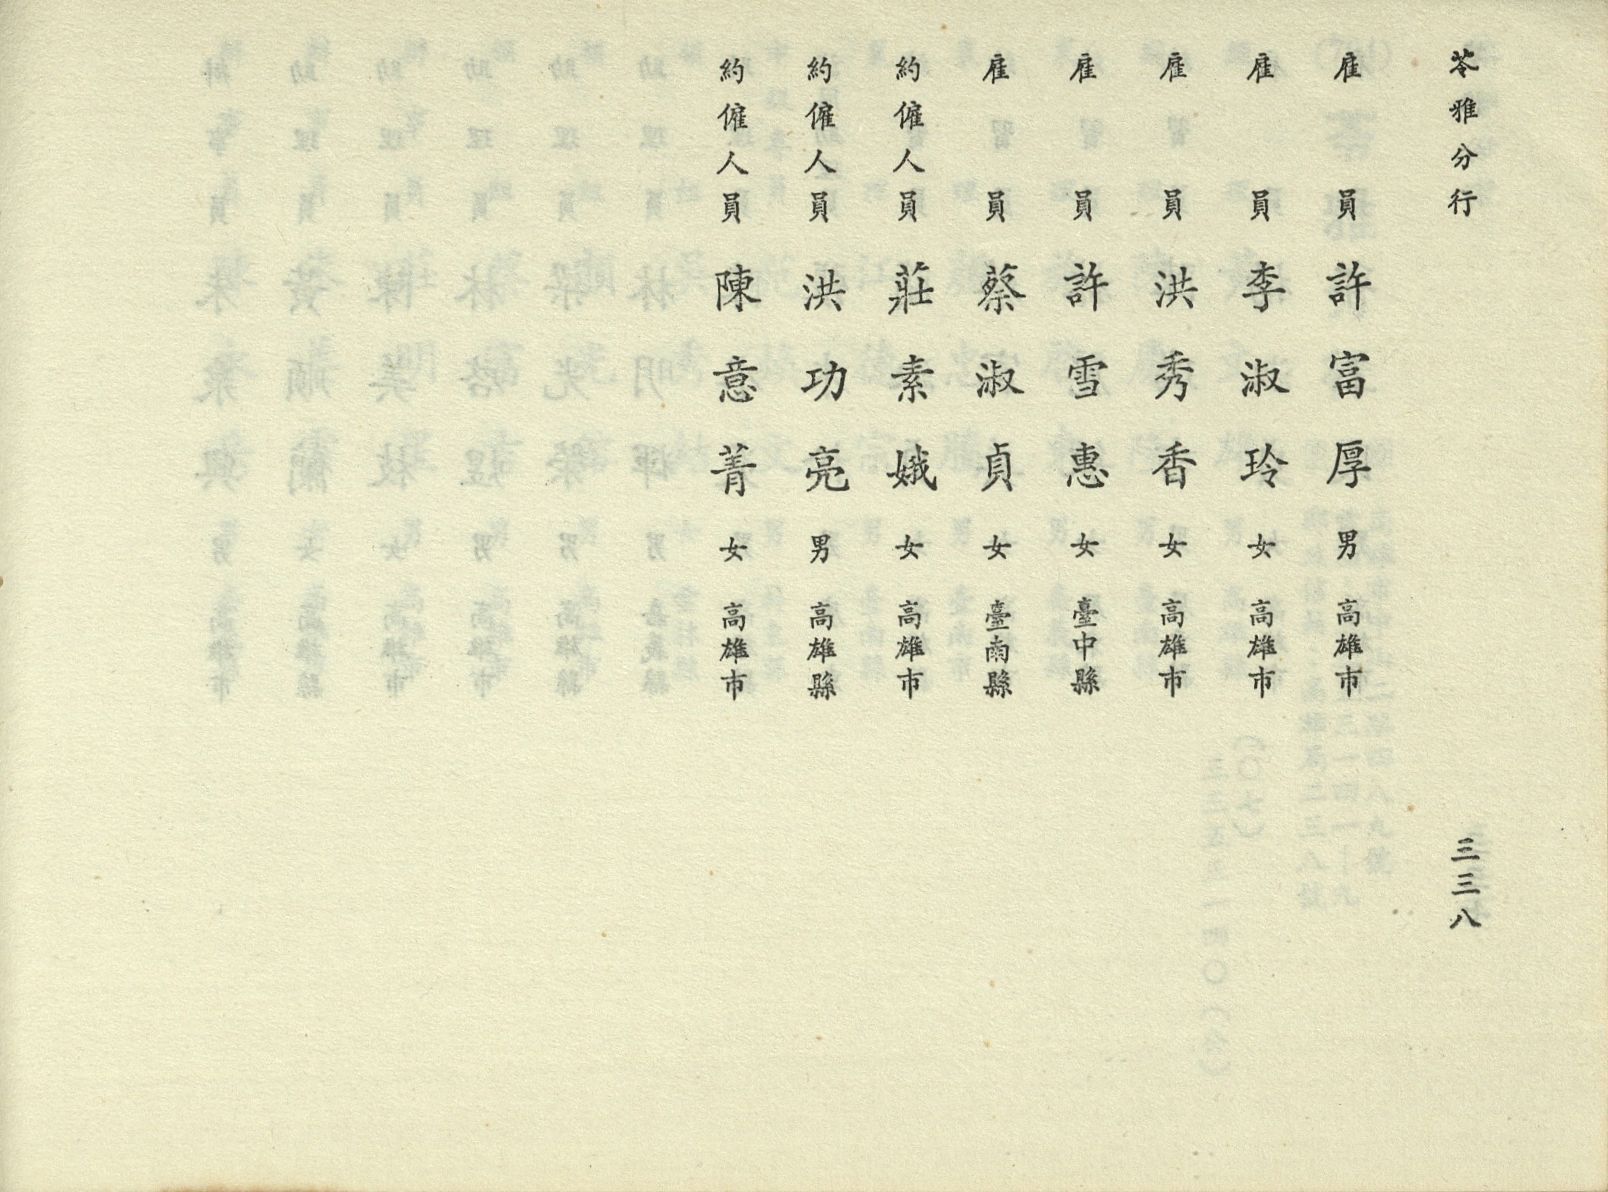 苓雅分行
三三八
雇員 許富厚 男 高雄市
雇員 李淑玲 女 高雄市
雇員 洪秀香 女 高雄市
雇員 許雪惠 女 臺中縣
雇員 蔡淑貞 女 臺南縣
約僱人員 莊素娥 女 高雄市
約僱人員 洪功亮 男 高雄縣
約僱人員 陳意菁 女 高雄市